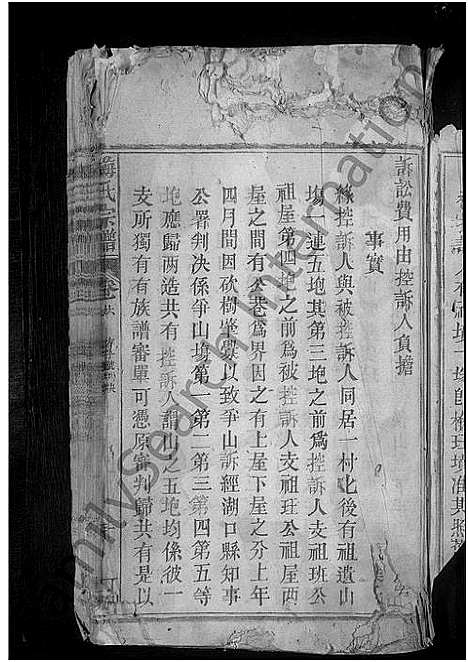 訴訟費用由控訴人負擔
事實
緣控訴人與被控訴人同居一村北後有祖遺山
塲一連五垉其第三垉之前爲控訴人支祖班公
祖屋第四垉之前爲被控訴人支祖玨公祖屋兩
屋之間有公巷爲界因之有上屋下屋之分上年
四月間因砍樹塋毀以致爭山訴經湖口縣知事
公署判决係爭山塲第一第二第三第四第五等
垉應歸兩造共有控訴人謂山之五垉均係彼一
支所獨有有族譜審單可憑原審判歸共有是以
氏宗譜
卷六
FamilySearch International